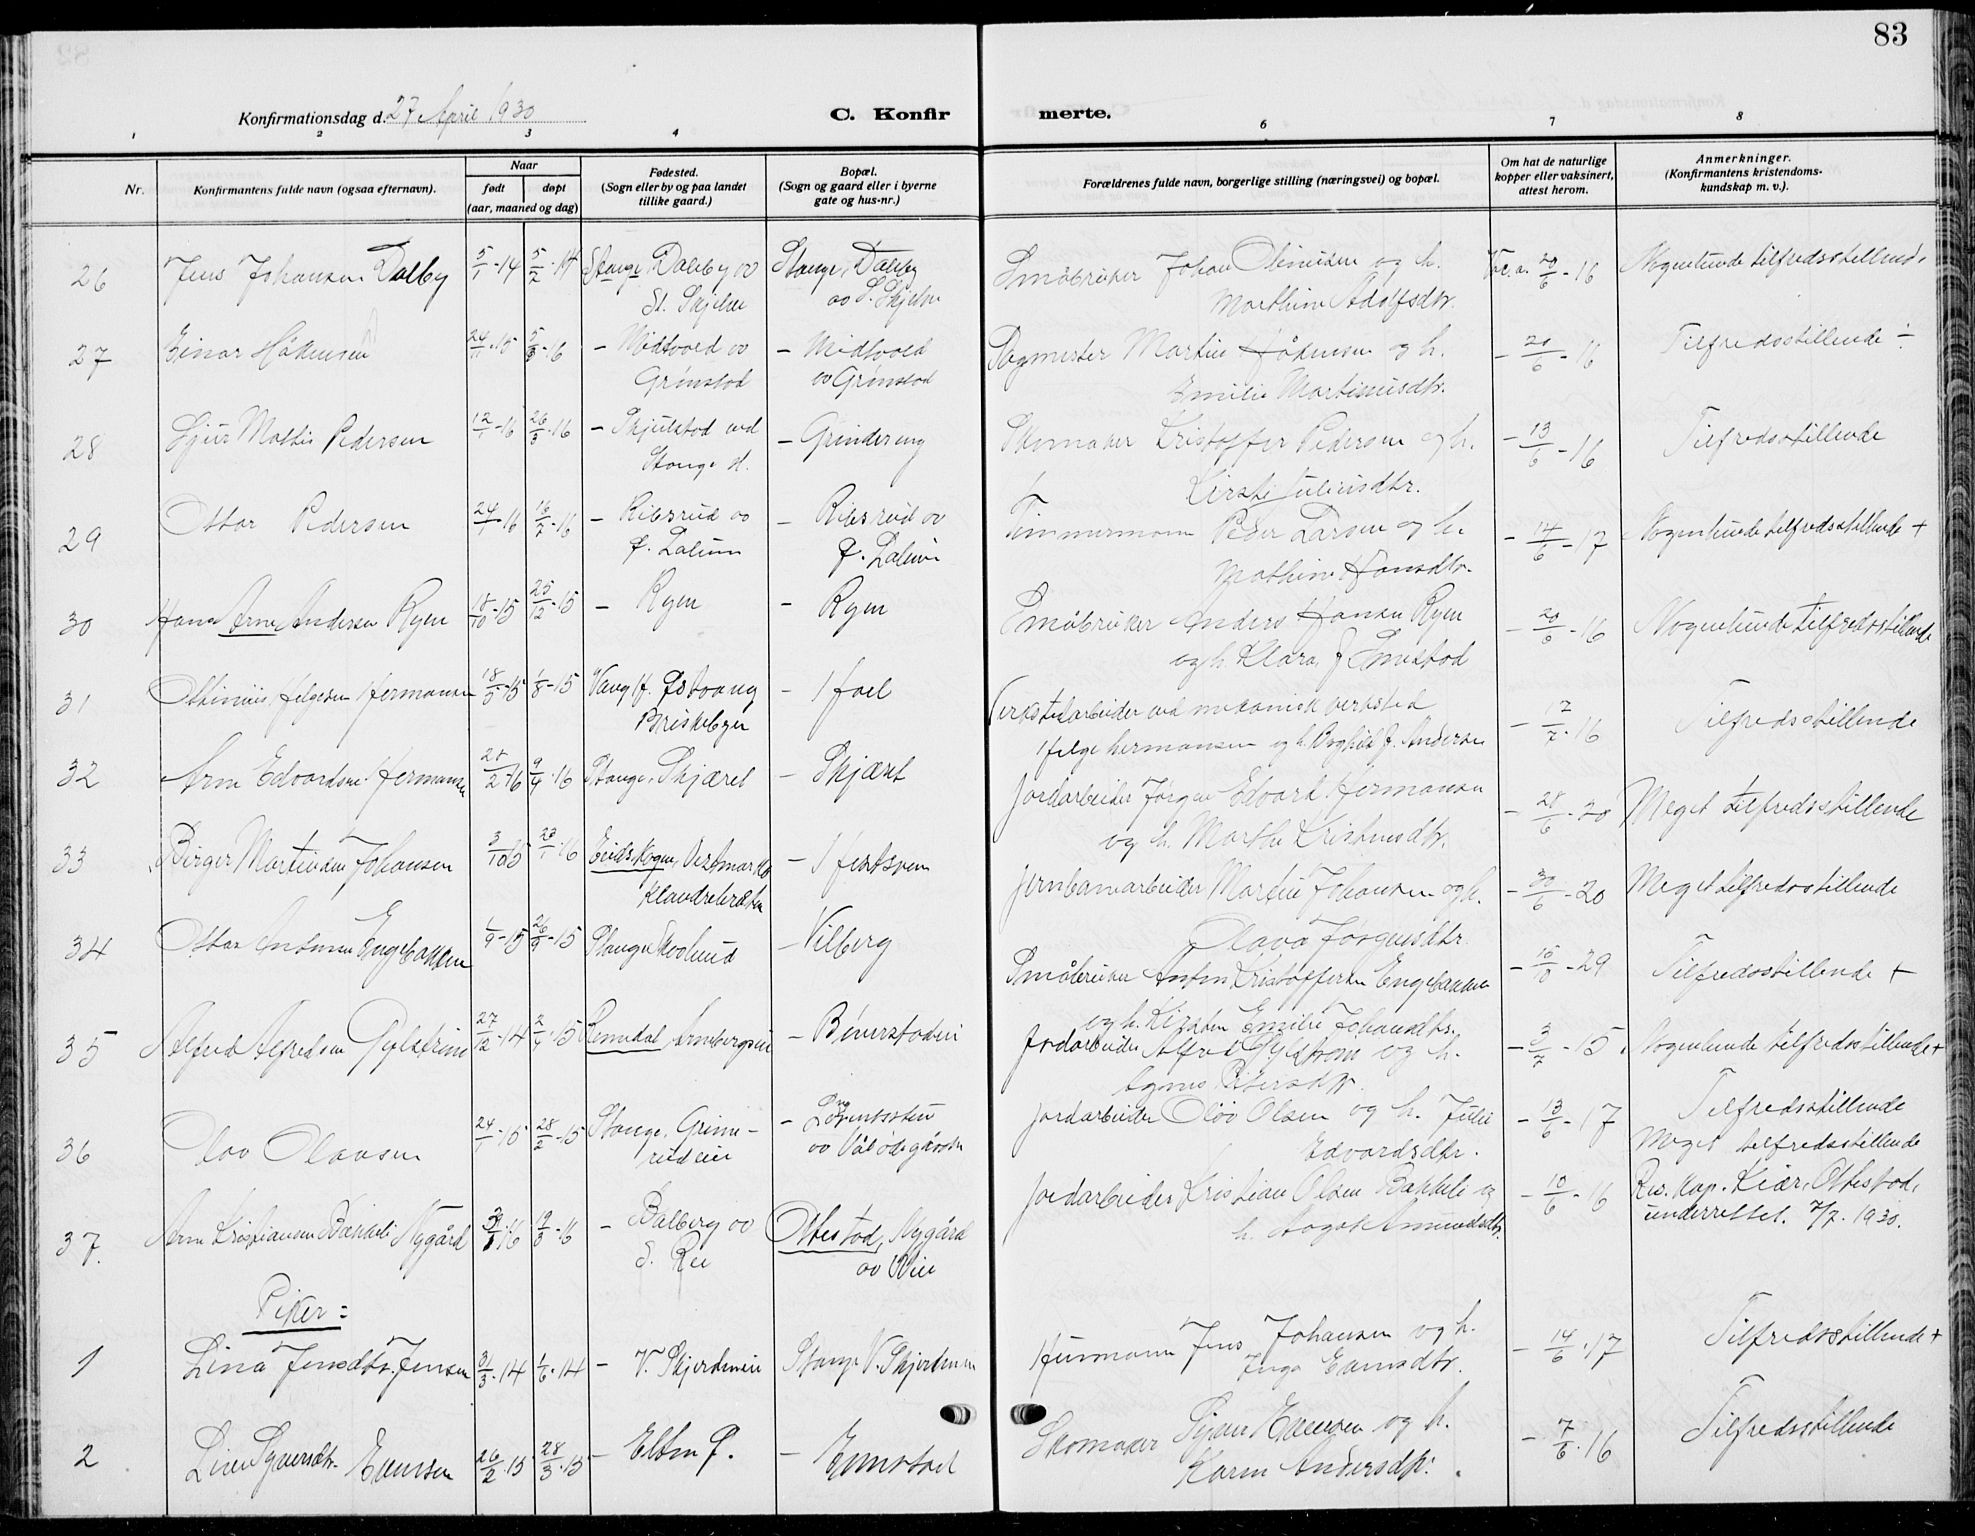 83
Konfirmationsdag d. 27 April 1930
C. Konfirmerte.
1 2 3 4 6 7 8
Nr.
Konfirmantens fulde navn (ogsaa efternavn).
Naar
født døpt
(aar, maaned og dag)
Fødested.
(Sogn eller by og paa landet
tillike gaard.)
Bopæl.
(Sogn og gaard eller i byerne
gate og hus-nr.)
Forældrenes fulde navn, borgerlige stilling (næringsvei) og bopæl.
Om hat de naturlige
kopper eller vaksinert,
attest herom.
Anmerkninger.
(Konfirmantens kristendoms-
kundskap m. v.).
26 Jens Johansen Dalby 5/1-14 5/2-14 Stange, Dalby av Stange, Dalby Småbruker Johan og h. Vac.a. 20/6-16 Nogenlunde tilfredsstillende
St. Skjelve av S. Skjelve Marthine Adolfsdtr.
27 Einar Håkensen 24/11-15 5/3-16 - Midtvold av - Midtvold Martin Håkensen og h. - 20/6-16 Tilfredsstillende ÷
Grønstad av Grønstad Emilie Martinusdtr.
28 Sjur Mattis Pedersen 12/1-16 26/3-16 - Skjulstad ved - Grindereng Skomaker Kristoffer Pedersen og h. - 13/6-16 Tilfredsstillende
Stange st. Kirsti Juliusdtr.
29 Ottar Pedersen 24/1-16 16/2-16 - Ribsrud av - Ribsrud av Timmermann Peder Larsen og h. - 14/6-17 Nogenlunde tilfredsstillende +
Ø. Lalum Ø. Lalum Mathine Hansdtr.
30 Hans Arne Andersen Ryen 18/10-15 25/12-15 - Ryen - Ryen Småbruker Anders Hansen Ryen - 20/6-16 Nogenlunde tilfredsstillende
og h. Klara f. Enestad
31 Helgesen Hermansen 18/5-15 1/8-15 Vang Østvang - Hoel Verkstedarbeider ved mekanisk verksted - 17/7-16 Tilfredsstillende
Briskebyen Helge Hermansen og h. Borghild f. Andersen
32 Arne Edvardsen Hermansen 28/2-16 9/4-16 Stange, Skjæret - Skjæret Jordarbeider Jørgen Edvard Hermansen - 28/6-20 Meget tilfredsstillende
og h. Marthe Kristensdtr.
33 Birger Martinsen Johansen 3/10-15 23/1-16 Eidskogen, Vestmarka - Hestsveen Jernbanearbeider Martin Johansen og h. - 30/6-20 Meget tilfredsstillende
Olava Jørgensdtr.
34 Ottar Antonsen Engebakken 1/9-15 26/9-15 Stange - Vilberg Småbruker Anton Kristoffersen Engebakken - 15/10-29 Tilfredsstillende +
og h. Kirsten Emilie Johansdtr.
35 Alfred Alfredsen Gylstrøm 27/12-14 2/4-15 Romedal, Arnebergseie - Bøverstadeie Jordarbeider Alfred Gylstrøm og h. - 3/7-15 Nogenlunde tilfredsstillende +
Agnes Petersdtr.
36 Olav Olavsen 24/1-15 28/2-15 Stange, Grime- - Jordarbeider Olav Olsen og h. Julie - 13/6-17 Tilfredsstillende
rudeie Edvardsdtr.
37. Arne Kristiansen Bakkeli Nygård 30/1-16 19/3-16 - Balberg av Ottestad, Nygård Jordarbeider Kristian Olsen Bakkeli og - 10/6-16 Meget tilfredsstillende
S. Ree av Wiee h. Aagot Amundsdtr. Res. Kap. Kiær, Ottestad,
underrettet. 7/7. 1930.
Piker:
1 Lina Jensdtr. Jensen 31/3-14 1/6-14 - V. Skjerdeneie Stange V. Skjerdeneie Husmann Jens Johansen og h. - 14/6-17 Tilfredsstillende +
Inga
2 26/2-15 28/3-15 - Elton Ø. - Enerstad Skomaker og h. - 7/6-16 Tilfredsstillende
Karen Andersdtr.